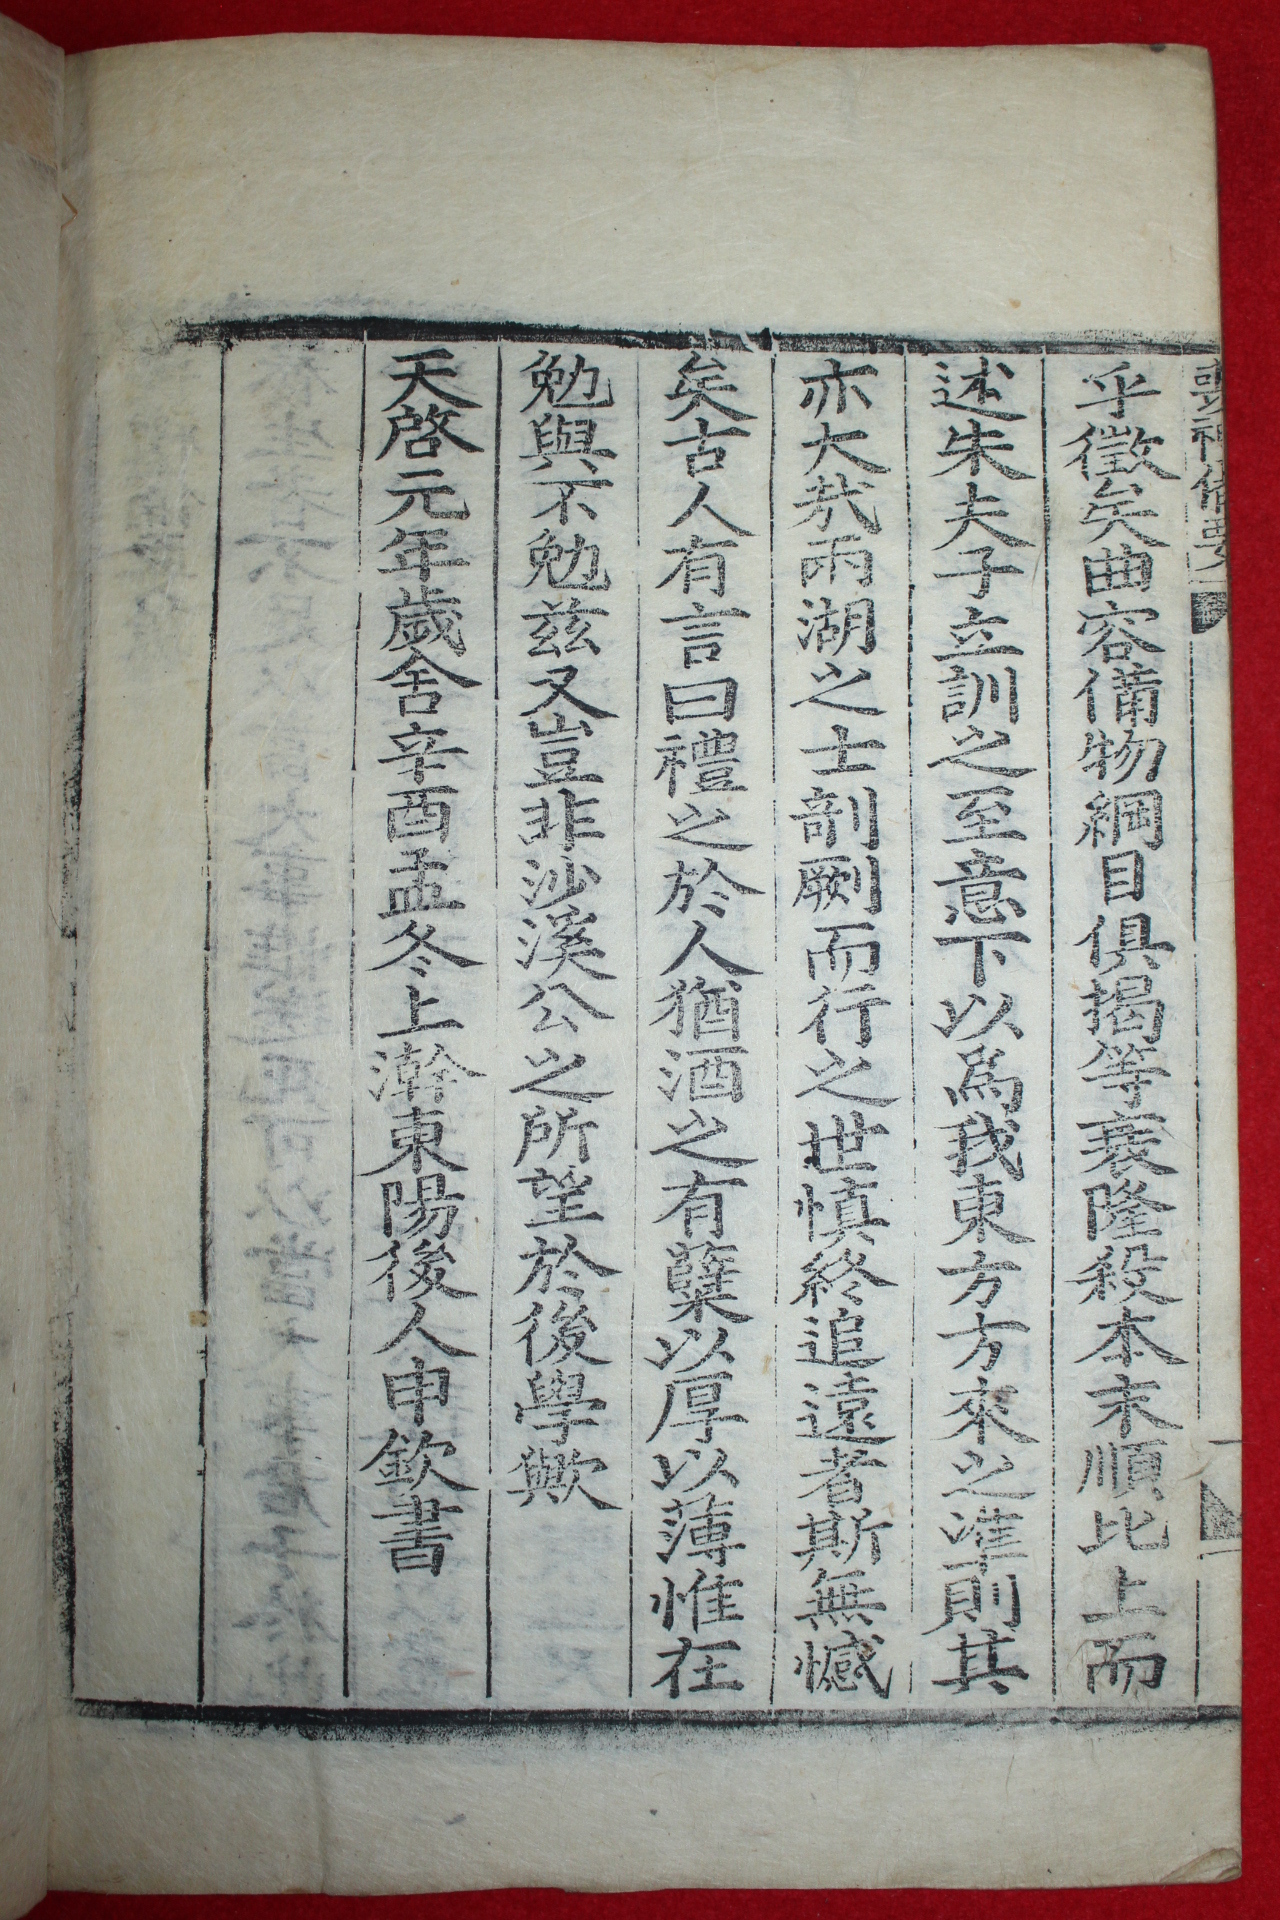 喪禮備要
乎徵矣曲容備物綱目俱揭等衰隆殺本末順比上而
述朱夫子立訓之至意下以爲我東方方來之準則其
亦大哉兩湖之士剖劂而行之世愼終追遠者斯無憾
矣古人有言曰禮之於人猶酒之有糵以厚以薄惟在
勉與不勉茲又豈非沙溪公之所望於後學歟
天啓元年歲舍辛酉孟冬上澣東陽後人申欽書